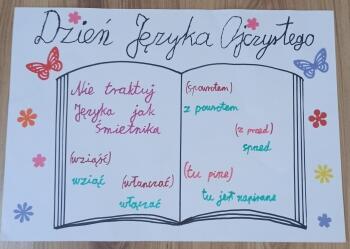 Dzień Języka Ojczystego
Nie traktuj
Języka jak
śmietnika
(wziąść)
wziąć
(włanczać)
włączać
(spowrotem)
z powrotem
(z przed)
sprzed
(tu pisze)
tu jest napisane